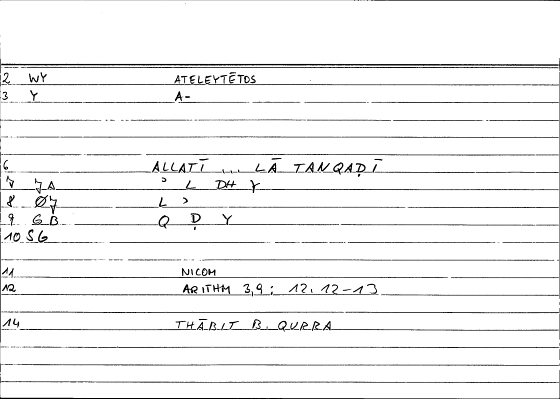 2 WY ATELEYTĒTOS
3 Y A-
6 ALLATĪ ... LĀ TANQAḌĪ
7 JA ʾ L DH Y
8 ØJ L ʾ
9 GB Q Ḍ Y
10 SG
11 NICOM
12 ARITHM 3,9 : 12, 12-13
14 THĀBIT B. QURRA